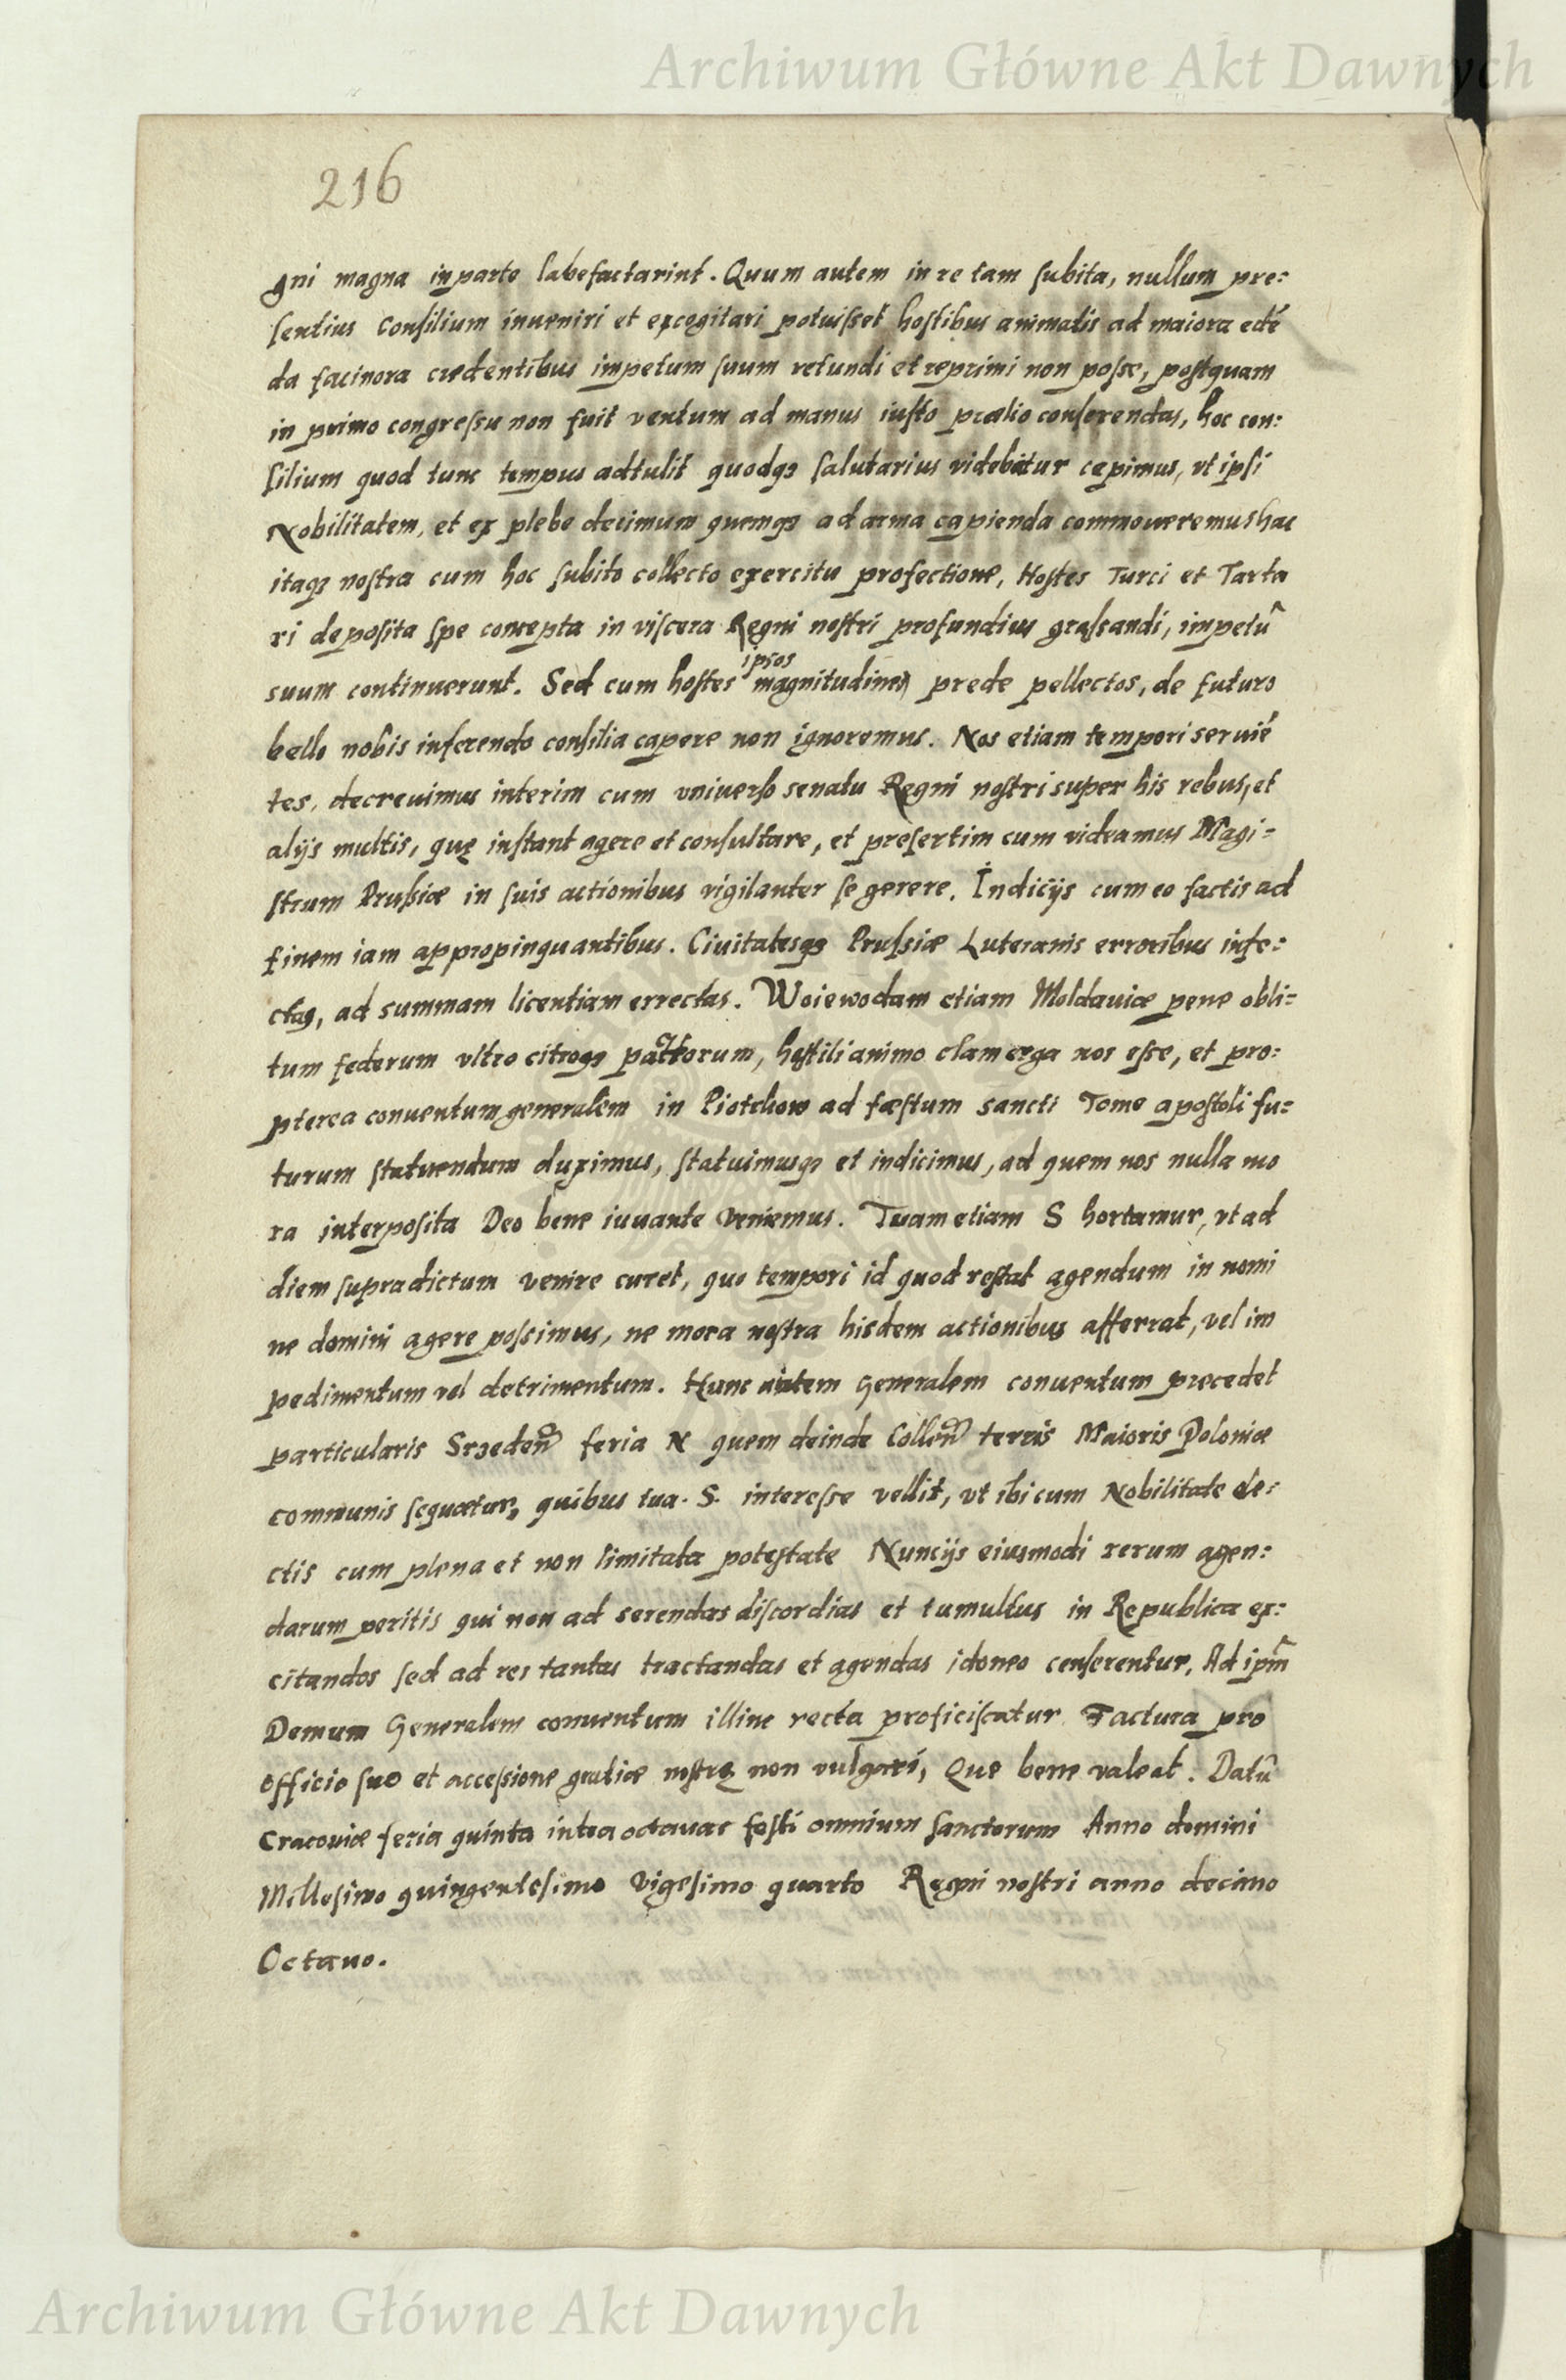 Archiwum Główne Akt Dawnych
216
gni magna in parte labefactarint. Quum autem in re tam subita, nullum pre=
sentius Consilium inueniri et excogitari potuisset hostibus animatis ad maiora edē
da facinora credentibus impetum suum retundi et reprimi non posse, postquam
in primo congressu non fuit ventum ad manus iusto prælio conserendas, hoc con=
silium quod tunc tempus adtulit quodqȝ salutarius videbatur cepimus, vt ipsi
Nobilitatem, et ex plebe decimum quemqȝ ad arma capienda commoueremus hac
itaqȝ nostra cum hoc subito collecto exercitu profectione, Hostes Turci et Tarta
ri deposita spe concepta in viscera Regni nostri profundius grassandi, impetū
ipsos
suum continuerunt. Sed cum hostes magnitudine prede pellectos, de futuro
bello nobis inferendo consilia capere non ignoremus. Nos etiam tempori seruiē
tes, decreuimus interim cum vniuerso senatu Regni nostri super his rebus, et
alijs multis, quę instant agere et consultare, et presertim cum videamus Magi=
strum Prussiæ in suis actionibus vigilanter se gerere. Indicijs cum eo factis ad
finem iam appropinquantibus. Ciuitatesqȝ Prussiæ Luteranis erroribus infe=
ctas, ad summam licentiam errectas. Woiewodam etiam Moldauiæ pene obli=
tum federum vltro citroqȝ pactorum, hostili animo clam erga nos esse, et pro=
pterea conuentum generalem in Piotrkow ad fæstum sancti Tome apostoli fu=
turum statuendum duximus, statuimusqȝ et indicimus, ad quem nos nulla mo
ra interposita Deo bene iuuante veniemus. Tuam etiam S hortamur, vt ad
diem supradictum venire curet, quo tempori id quod restat agendum in nomi
ne domini agere possimus, ne mora nostra hisdem actionibus afferrat, vel im
pedimentum vel detrimentum. Hunc autem Generalem conuentum precedet
particularis Srzedeñ feria N quem deinde Colleñ terris Maioris Poloniæ
communis sequætur, quibus tua. S. interesse vellit, vt ibi cum Nobilitate de=
ctis cum plena et non limitata potestate Nuncijs eiusmodi rerum agen=
darum peritis qui non ad serendas discordias et tumultus in Republica ex=
citandos sed ad res tantas tractandas et agendas idoneo censerentur, Ad ipm̄
Demum Generalem conuentum illinc recta proficiscatur Factura pro
officio suo et accessione gratiæ nostrę non vulgari, Que bene valeat. Datū
Cracouiæ feria quinta intra octauas festi omnium sanctorum Anno domini
Millesimo quingentesimo vigesimo quarto Regni nostri anno decimo
Octauo.
Archiwum Główne Akt Dawnych